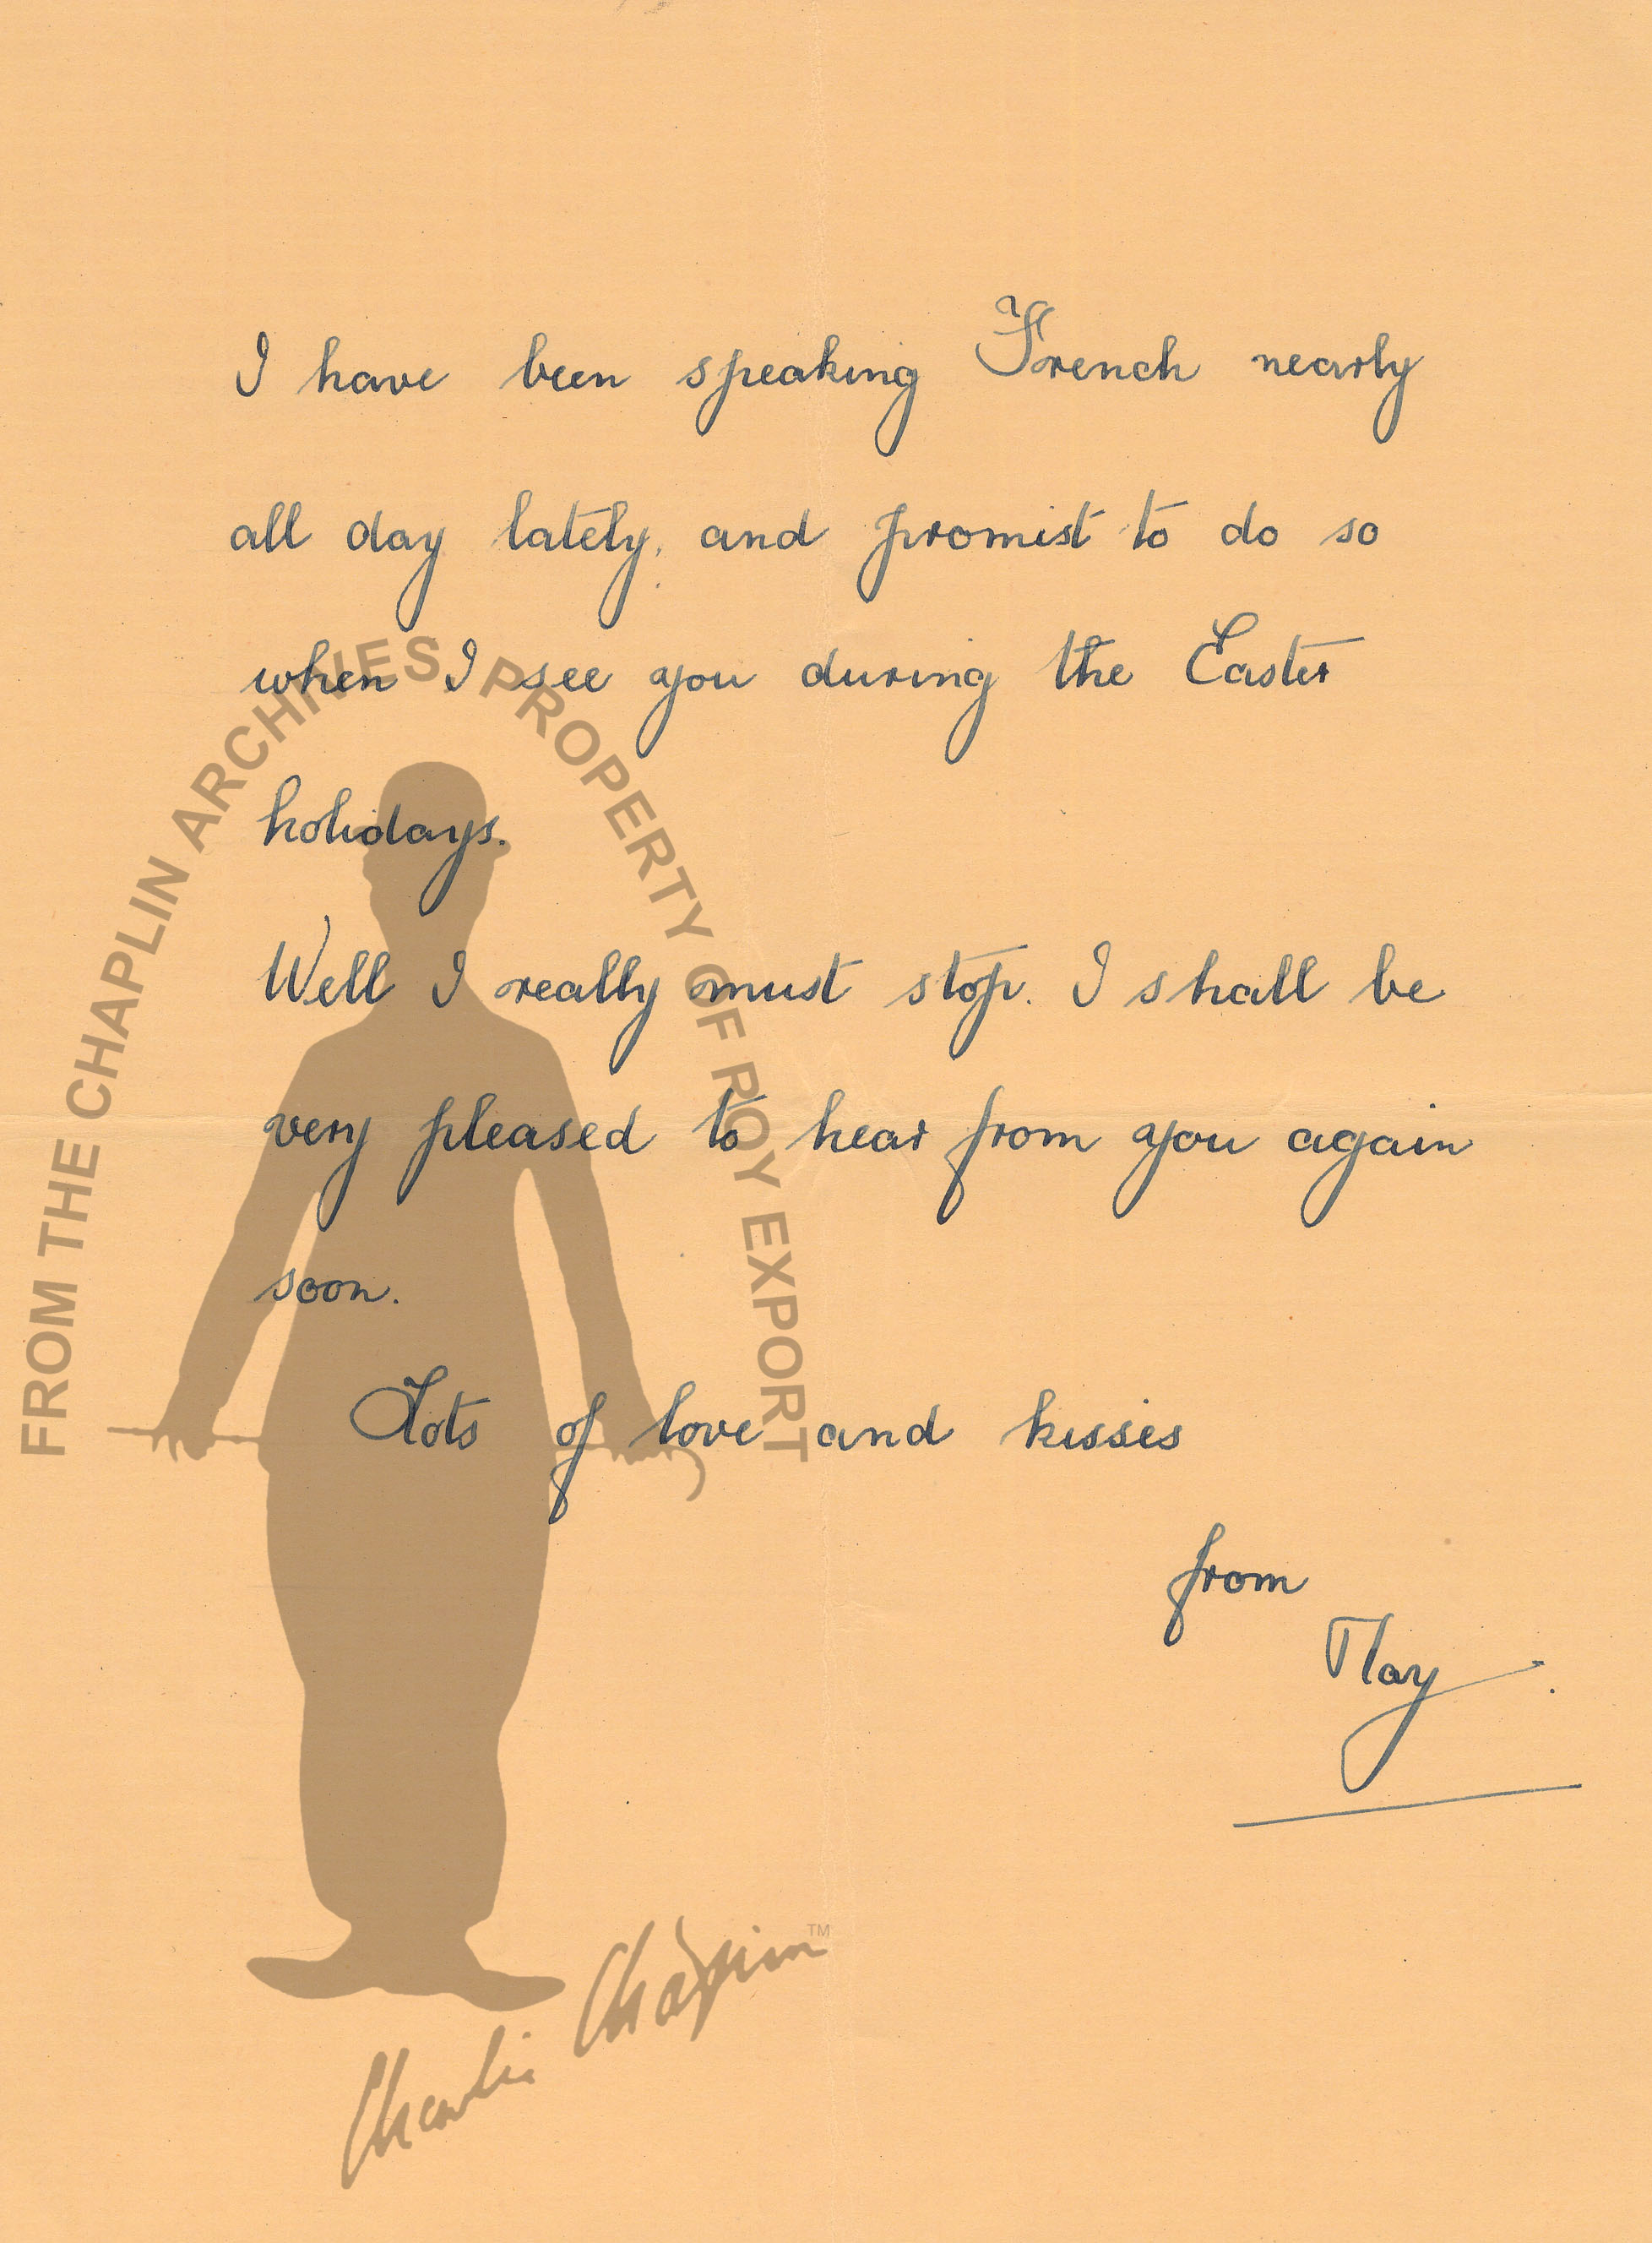 I have been speaking French nearly
all day lately, and promist to do so
when I see you during the Easter
holidays.
Well I really must stop. I shall be
very pleased to hear from you again
soon.
Lots of love and kisses
from
May.
FROM THE CHAPLIN ARCHIVES, PROPERTY OF ROY EXPORT
Charlie Chaplin™